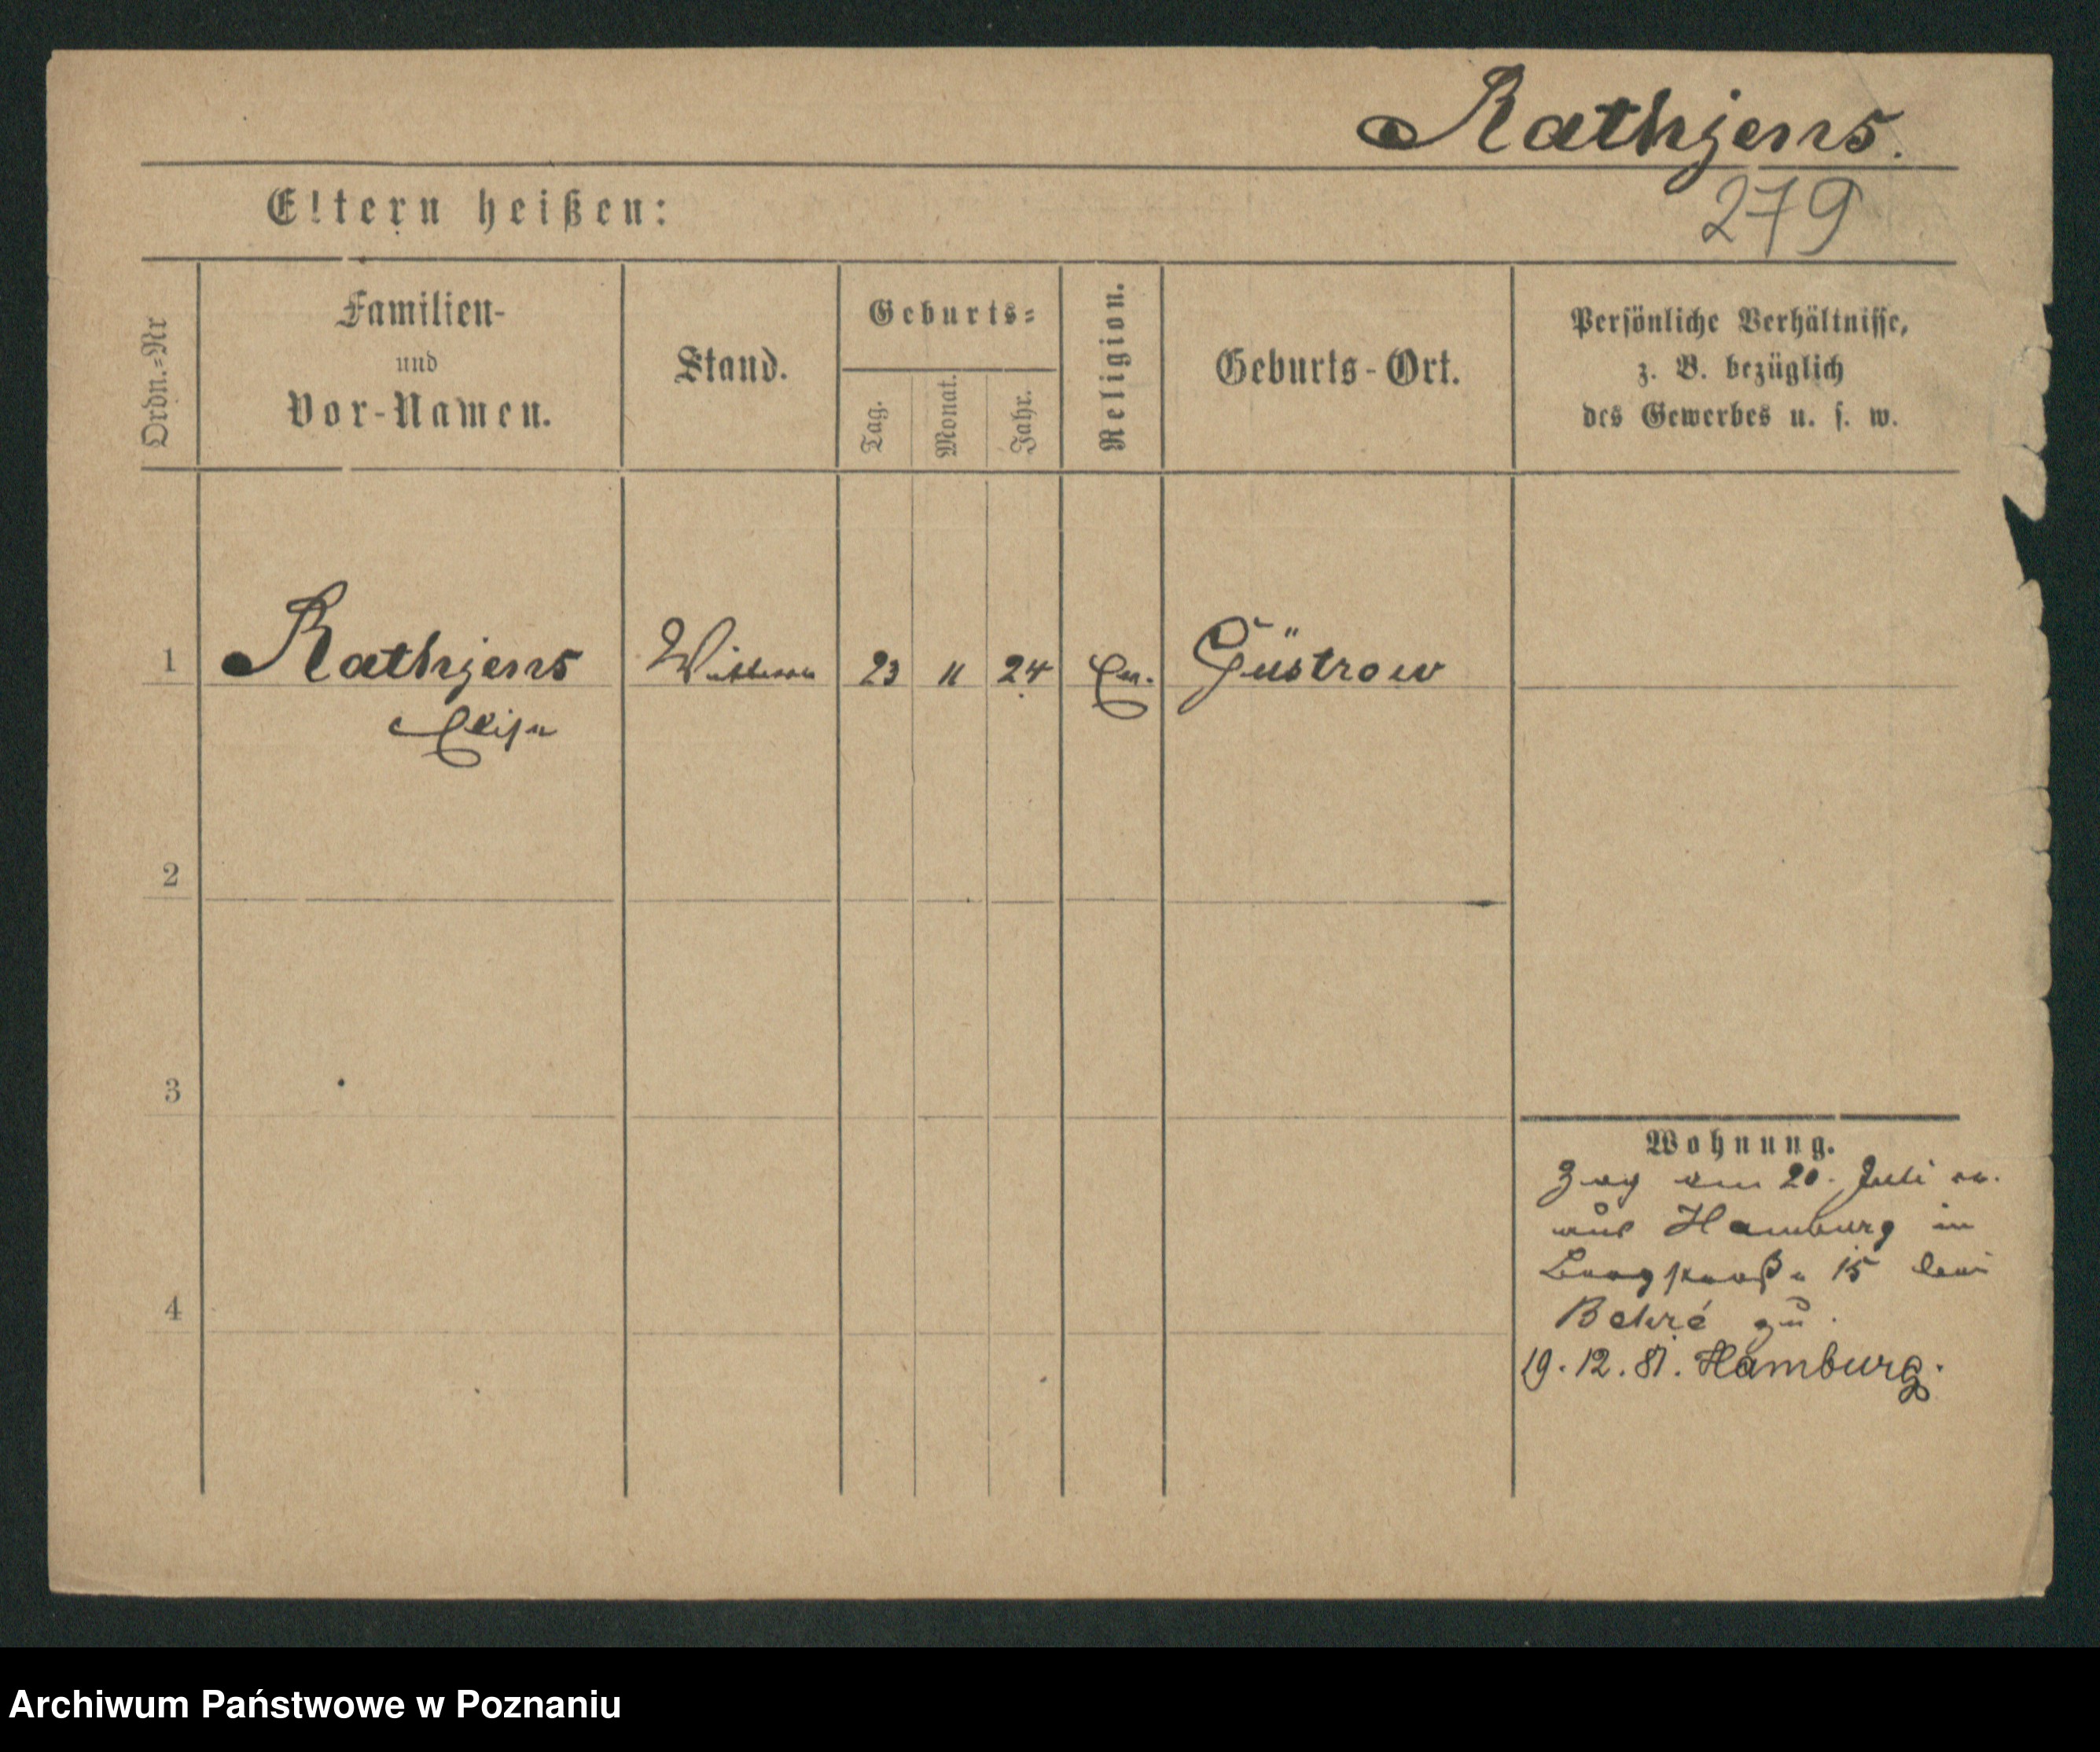 Rathjens.
279
Eltern heißen:
Ordn.=Nr
Familien-
und
Vor-Namen.
Stand.
Geburts=
Tag.
Monat.
Jahr.
Religion.
Geburts-Ort.
Persönliche Verhältnisse,
z. B. bezüglich
des Gewerbes u. s. w.
1 Rathjens 23 11 24 Güstrow
Elise
2
3
4
Wohnung.
Zog am 20. Juli
aus Hamburg in
15 bei
Behré zu.
19. 12. 81. Hamburg.
Archiwum Państwowe w Poznaniu